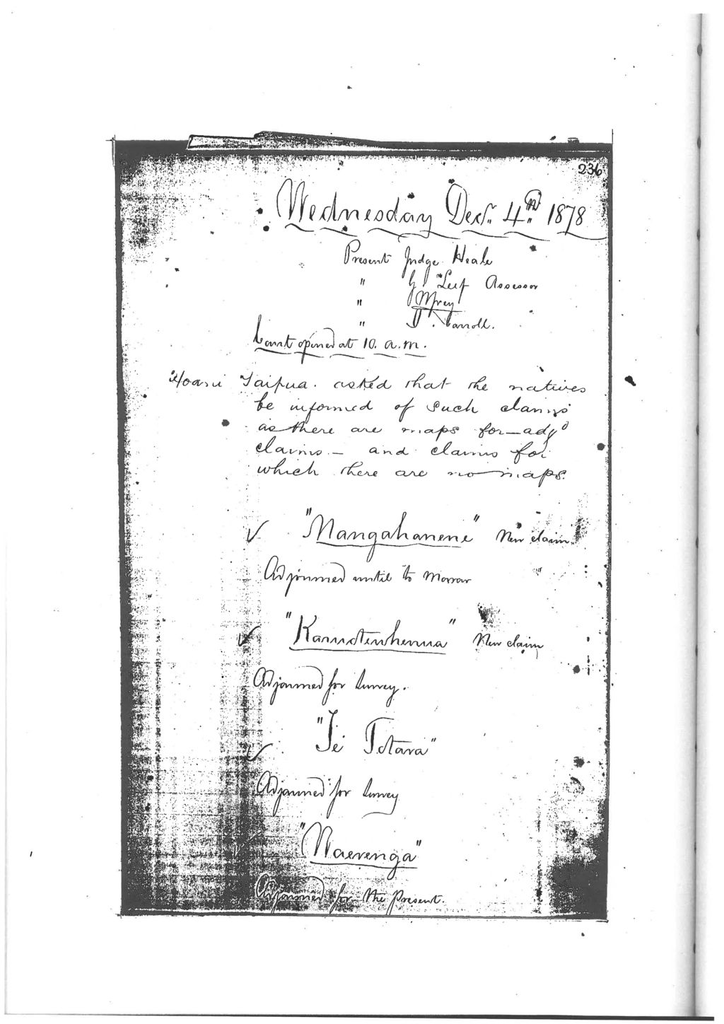 236
Wednesday Decr. 4th 1878
Present Judge Heale
" Assessor
"
" Carroll.
Court opened at 10. a.m.
Hoani Taipua. asked that the natives
be informed of such claims
as there are maps for — adjd
claims — and claims for
which there are no maps.
"Mangahanene" New claim
Adjourned until to morrow
New claim
Adjourned for Survey.
"Te Totara"
Adjourned for Survey
"Waerenga"
Adjourned for the present.